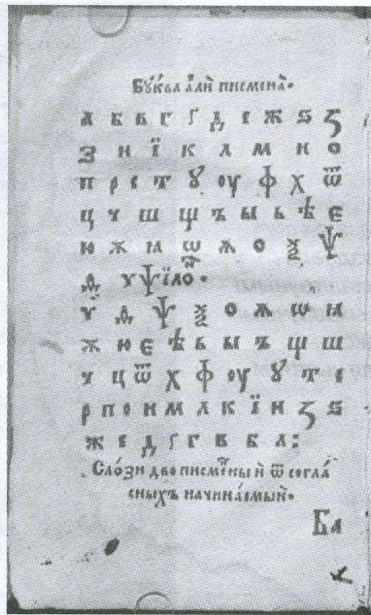 Бꙋ́ква а҆лѝ писмена̀.
а б в г ґ д е ж ѕ ʒ
з и ї к л м н о
п р с т ꙋ оу ф х ѿ
ц ч ш щ ъ ы ь ѣ є
ю ѫ ꙗ ѡ ѧ ѻ ѯ ѱ
ѳ ѵ ѱило̀.
ѵ ѳ ѱ ѯ ѻ ѧ ѡ ꙗ
ѫ ю є ѣ ь ы ъ щ ш
ч ц ѿ х ф оу ꙋ т с
р п о н м л к ї и ʒ ѕ
ж е д ґ г в б а:
Сло́зи дво писме́ны и҆ ѿ согла́
сныхъ начина́емыи.
Ба